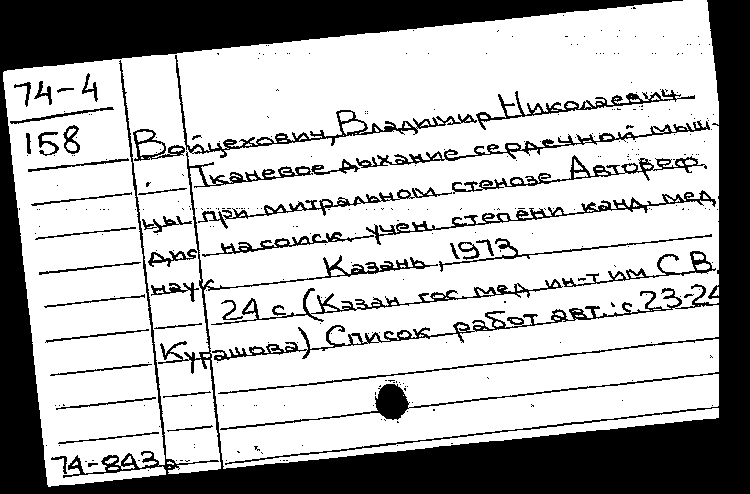 74-4
158
Войцехович, Владимир Николаевич
Тканевое дыхание сердечной мыш-
цы при митральном стенозе Автореф.
дис. на соиск. учен. степени канд. мед.
наук. Казань, 1973.
24 с. (Казан гос. мед. ин-т им С.В.
Курашова) Список работ авт.: с.23-24
74-843а